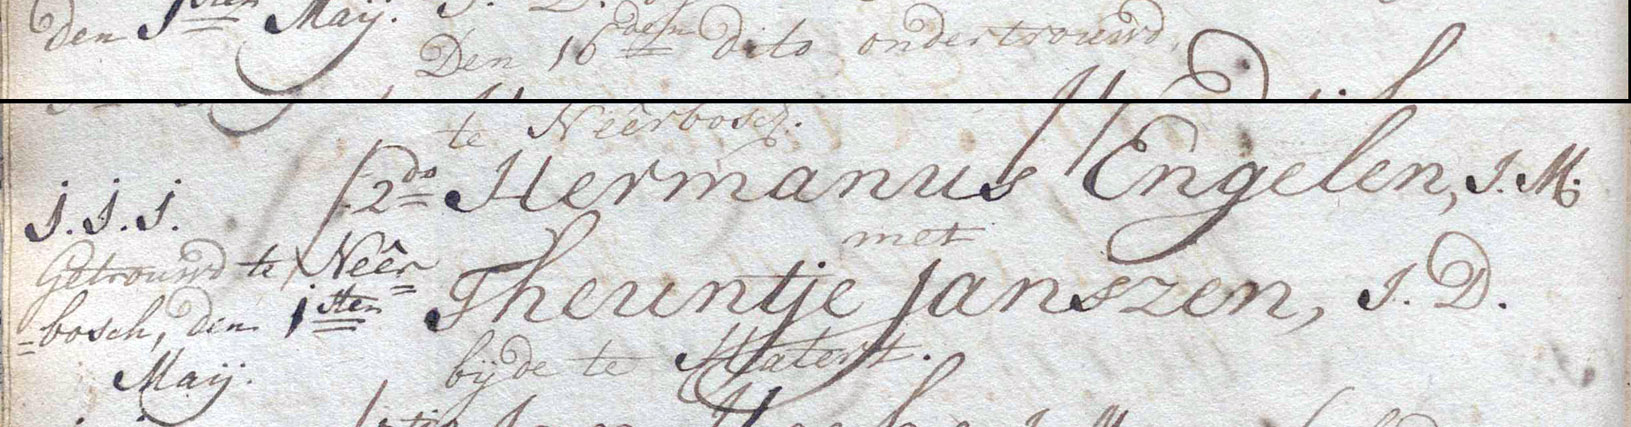 den 1sten Maij.
Den 16den dito ondertrouwd,
te Neêrbosch.
2do Hermanus Engelen, J. M.
J. J. J.
met
Getrouwd te Neêr=
Theuntje Janszen, J. D.
=bosch, den 1sten
bijde te Hatert.
Maij.